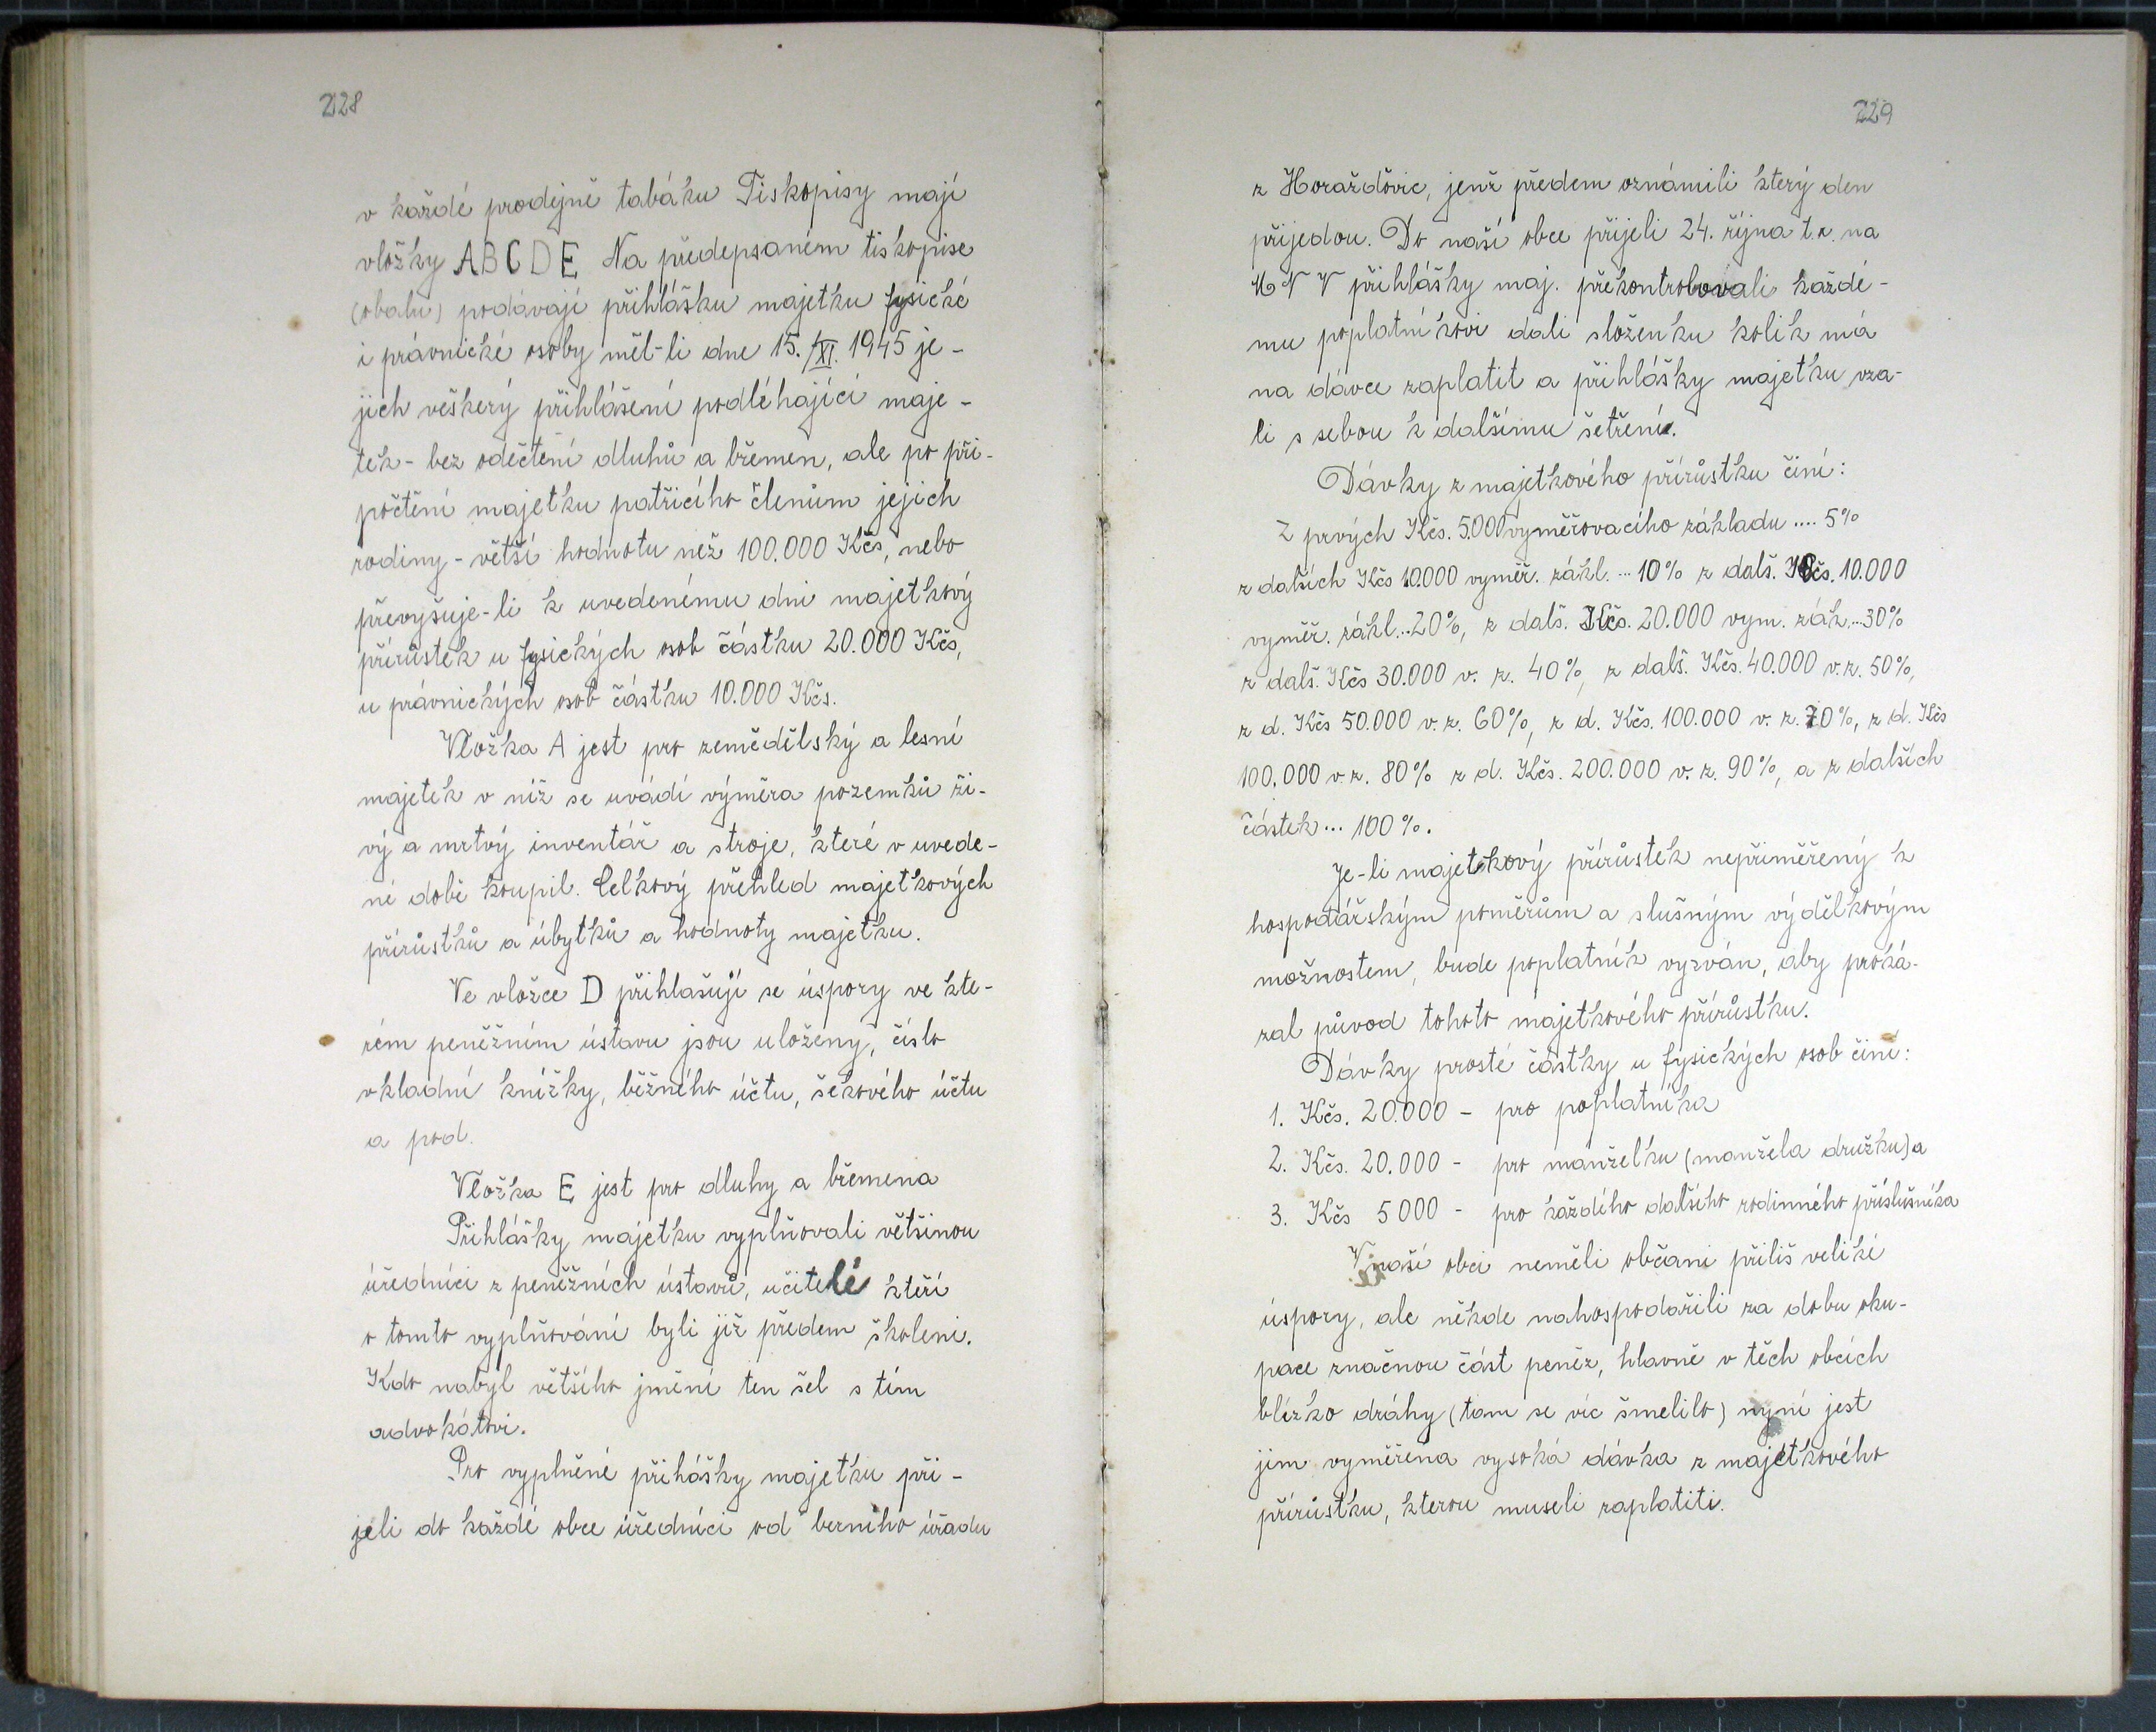 228
v každé prodejně tabáku Tiskopisy mají
vložky ABCDE Na předepsaném tiskopise
(obalu) podávají přihlášku majetku fysické
i právnické osoby měl-li dne 15./XI. 1945 je-
jich veškerý přihlášení podléhající maje-
tek - bez odečtení dluhů a břemen, ale po při-
počtění majetku patřícího členům jejich
rodiny - větší hodnotu než 100.000 Kčs, nebo
převyšuje-li k uvedenému dni majetkový
přírůstek u fysických osob částku 20.000 Kčs,
u právnických osob částku 10.000 Kčs.
Vložka A jest pro zemědělský a lesní
majetek v níž se uvádí výměra pozemků ži-
vý a mrtvý inventář a stroje, které v uvede-
né době koupil. Celkový přehled majetkových
přírůstků a úbytků a hodnoty majetku.
Ve vložce D přihlašují se úspory ve kte-
rém peněžním ústavu jsou uloženy, číslo
vkladní knížky, běžného účtu, šekového účtu
a pod.
Vložka E jest pro dluhy a břemena
Přihlášky majetku vyplňovali většinou
úředníci z peněžních ústavů, učitelé kteří
o tomto vyplňování byli již předem školeni.
Kdo nabyl většího jmění ten šel s tím
advokátovi.
Pro vyplněné přihášky majetku při-
jeli do každé obce úředníci od berního úřadu
229
z Horažďovic, jenž předem oznámili který den
přijedou. Do naší obce přijeli 24. října t.r. na
MNV přihlášky maj. překontrolovali každé-
mu poplatníkovi dali složenku kolik má
na dávce zaplatit a přihlášky majetku vza-
li s sebou k dalšímu šetření.
Dávky z majetkového přírůstku činí:
Z prvých Kčs. 5.000 vyměřovacího základu .... 5%
z dalších Kčs 10.000 vyměř. zákl. ... 10% z dalš. Kčs. 10.000
vyměř. zákl...20%, z dalš. Kčs. 20.000 vym. zák...30%
z dalš. Kčs 30.000 v. z. 40%, z dalš. Kčs. 40.000 v.z. 50%,
z d. Kčs 50.000 v. z. 60%, z d. Kčs. 100.000 v. z. 70%, z d. Kčs
100.000 v.z. 80% z d. Kčs. 200.000 v. z. 90%, a z dalších
částek ... 100%.
Je-li majetkový přírůstek nepřiměřený k
hospodářským poměrům a slušným výdělkovým
možnostem, bude poplatník vyzván, aby proká-
zal původ tohoto majetkového přírůstku.
Dávky prosté částky u fysických osob činí:
1. Kčs. 20.000 - pro poplatníka
2. Kčs. 20.000 - pro manželku (manžela družku) a
3. Kčs 5000 - pro každého dalšího rodinného příslušníka
V naší obci neměli občani příliš veliké
úspory, ale někde nahospodařili za dobu oku-
pace značnou část peněz, hlavně v těch obcích
blízko dráhy (tam se víc šmelilo) nyní jest
jim vyměřena vysoká dávka z majetkového
přírůstku, kterou museli zaplatiti.